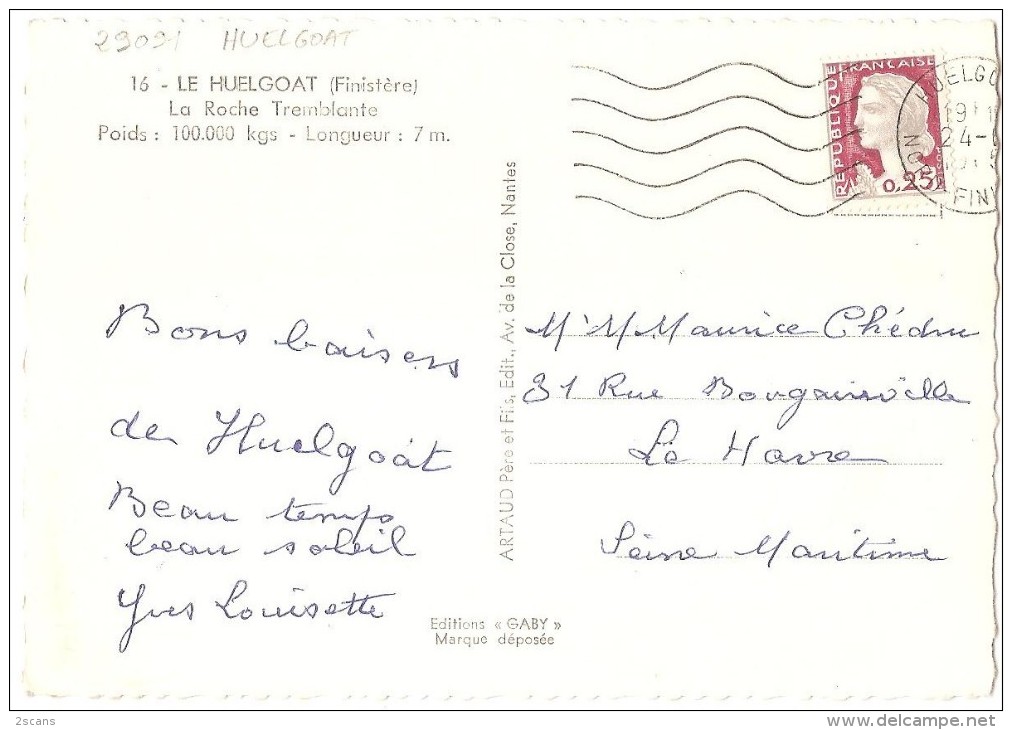 29091 HUELGOAT
16 - LE HUELGOAT (Finistère)
La Roche Tremblante
Poids : 100.000 kgs - Longueur : 7 m.
REPUBLIQUE FRANÇAISE
0,25
HUELGO
24-
FINI
ARTAUD Père et Fils, Edit., Av. de la Close, Nantes
Bons baisers
de Huelgoat
Beau temps
beau soleil
Yves Louisette
M. M Maurice Chédru
31 Rue Bougainville
Le Havre
Seine Maritime
Editions « GABY »
Marque déposée
2scans
delcampe.net